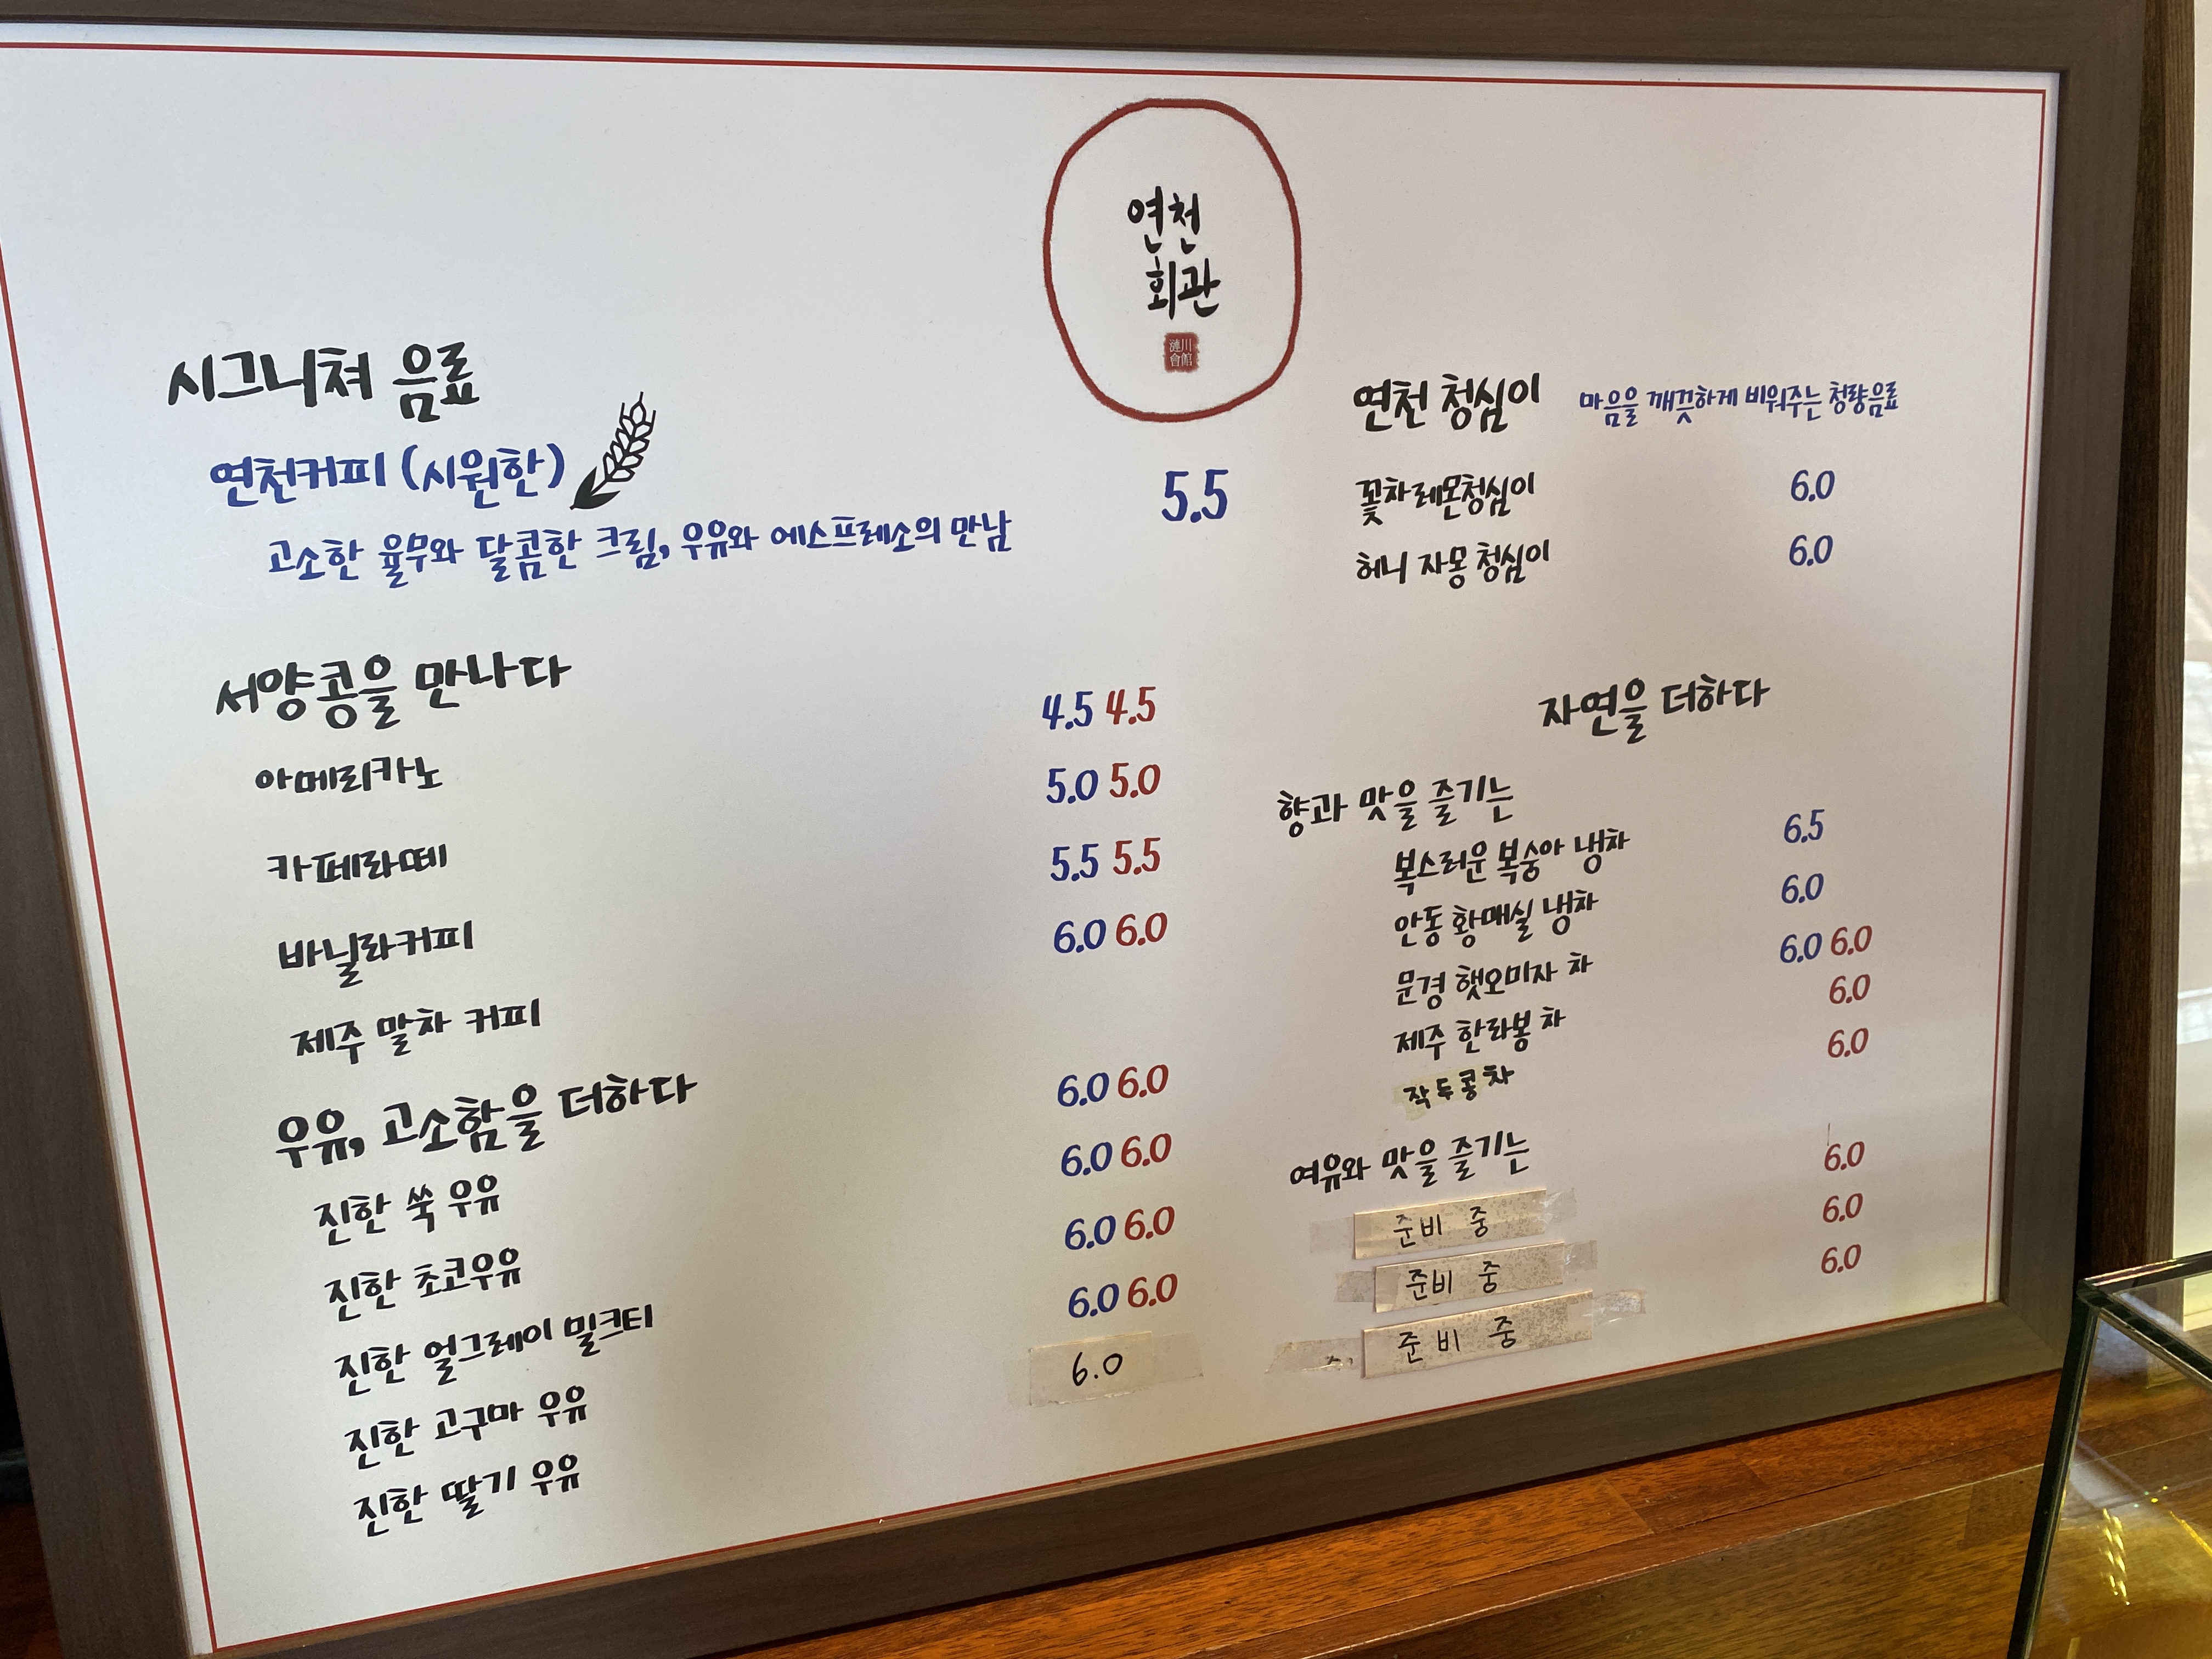 연천
회관
漣川
會館
시그니쳐 음료
연천커피 (시원한) 5.5
고소한 율무와 달콤한 크림, 우유와 에스프레소의 만남
서양콩을 만나다
아메리카노 4.5 4.5
카페라떼 5.0 5.0
바닐라커피 5.5 5.5
제주 말차 커피 6.0 6.0
우유, 고소함을 더하다
진한 쑥 우유 6.0 6.0
진한 초코우유 6.0 6.0
진한 얼그레이 밀크티 6.0 6.0
진한 고구마 우유 6.0 6.0
진한 딸기 우유 6.0
연천 청심이 마음을 깨끗하게 비워주는 청량음료
꽃차레몬청심이 6.0
허니 자몽 청심이 6.0
자연을 더하다
향과 맛을 즐기는
복스러운 복숭아 냉차 6.5
안동 황매실 냉차 6.0
문경 햇오미자 차 6.0 6.0
제주 한라봉 차 6.0
작두콩차 6.0
여유와 맛을 즐기는
준비 중 6.0
준비 중 6.0
준비 중 6.0